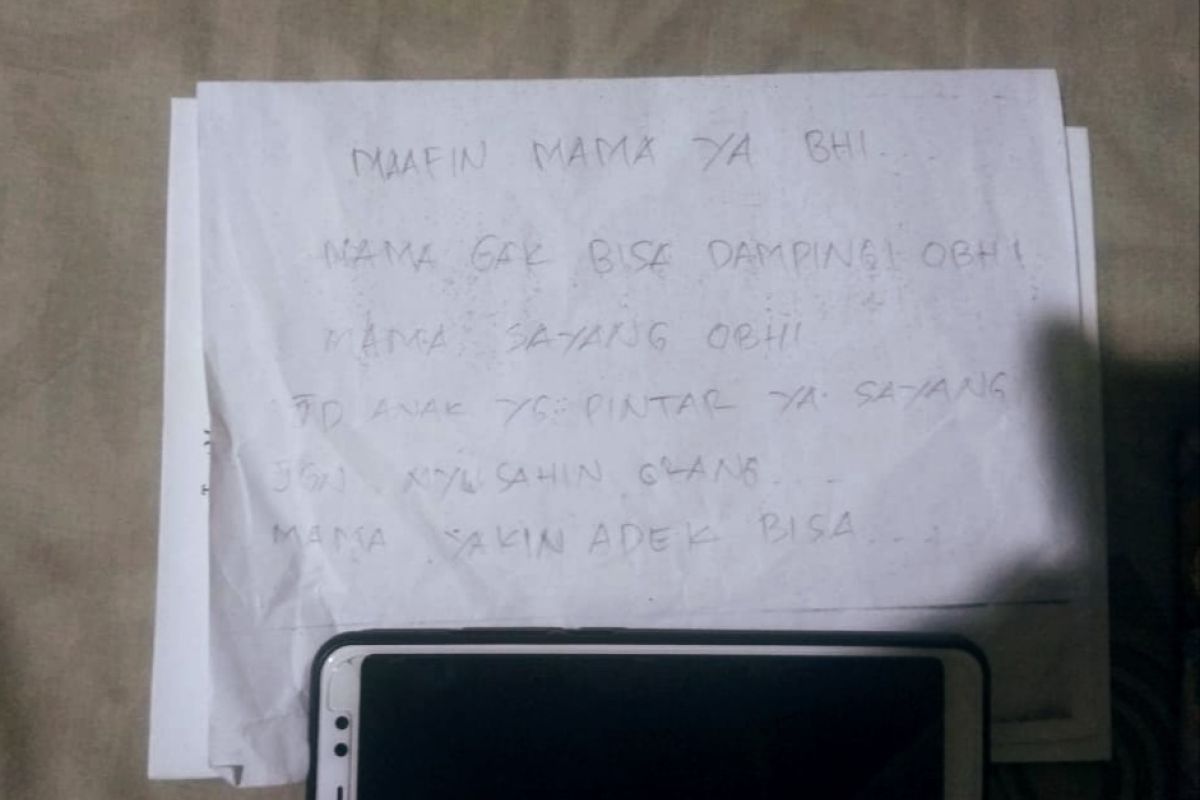 MAAFIN MAMA YA BHI...
MAMA GAK BISA DAMPINGI OBHI
MAMA SAYANG OBHI
JD ANAK YG PINTAR YA SAYANG
JGN NYUSAHIN ORANG...
MAMA YAKIN ADEK BISA....